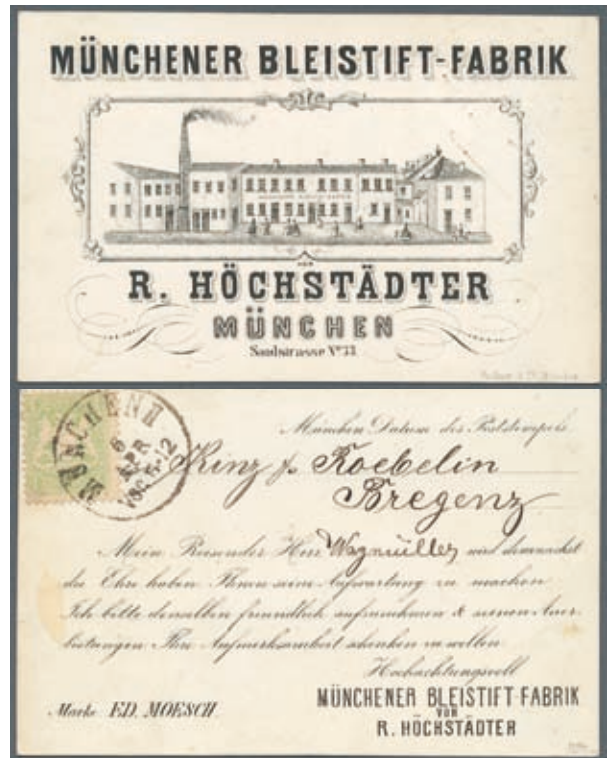 MÜNCHENER BLEISTIFT-FABRIK
VON
R. HÖCHSTÄDTER
MÜNCHEN
Sandstrasse No. 33
MÜNCHEN II
6
APR
VOR 12
München Datum des Poststempels
Kinz & Roebelin
Bregenz
Mein Reisender Herr Wagmüller wird demnächst
die Ehre haben Ihnen seine Aufwartung zu machen.
Ich bitte denselben freundlich aufzunehmen & seinen Aner-
bietungen Ihre Aufmerksamkeit schenken zu wollen.
Hochachtungsvoll
Marke ED. MOESCH.
MÜNCHENER BLEISTIFT FABRIK
VON
R. HÖCHSTÄDTER